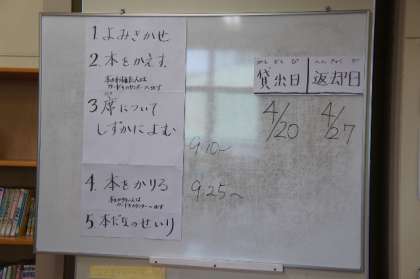 1 よみきかせ
2. 本をかえす
3 席について
しずかによむ
9:10～
4. 本をかりる
9:25～
5 本だなのせいり
貸出日
返却日
4/20
4/27